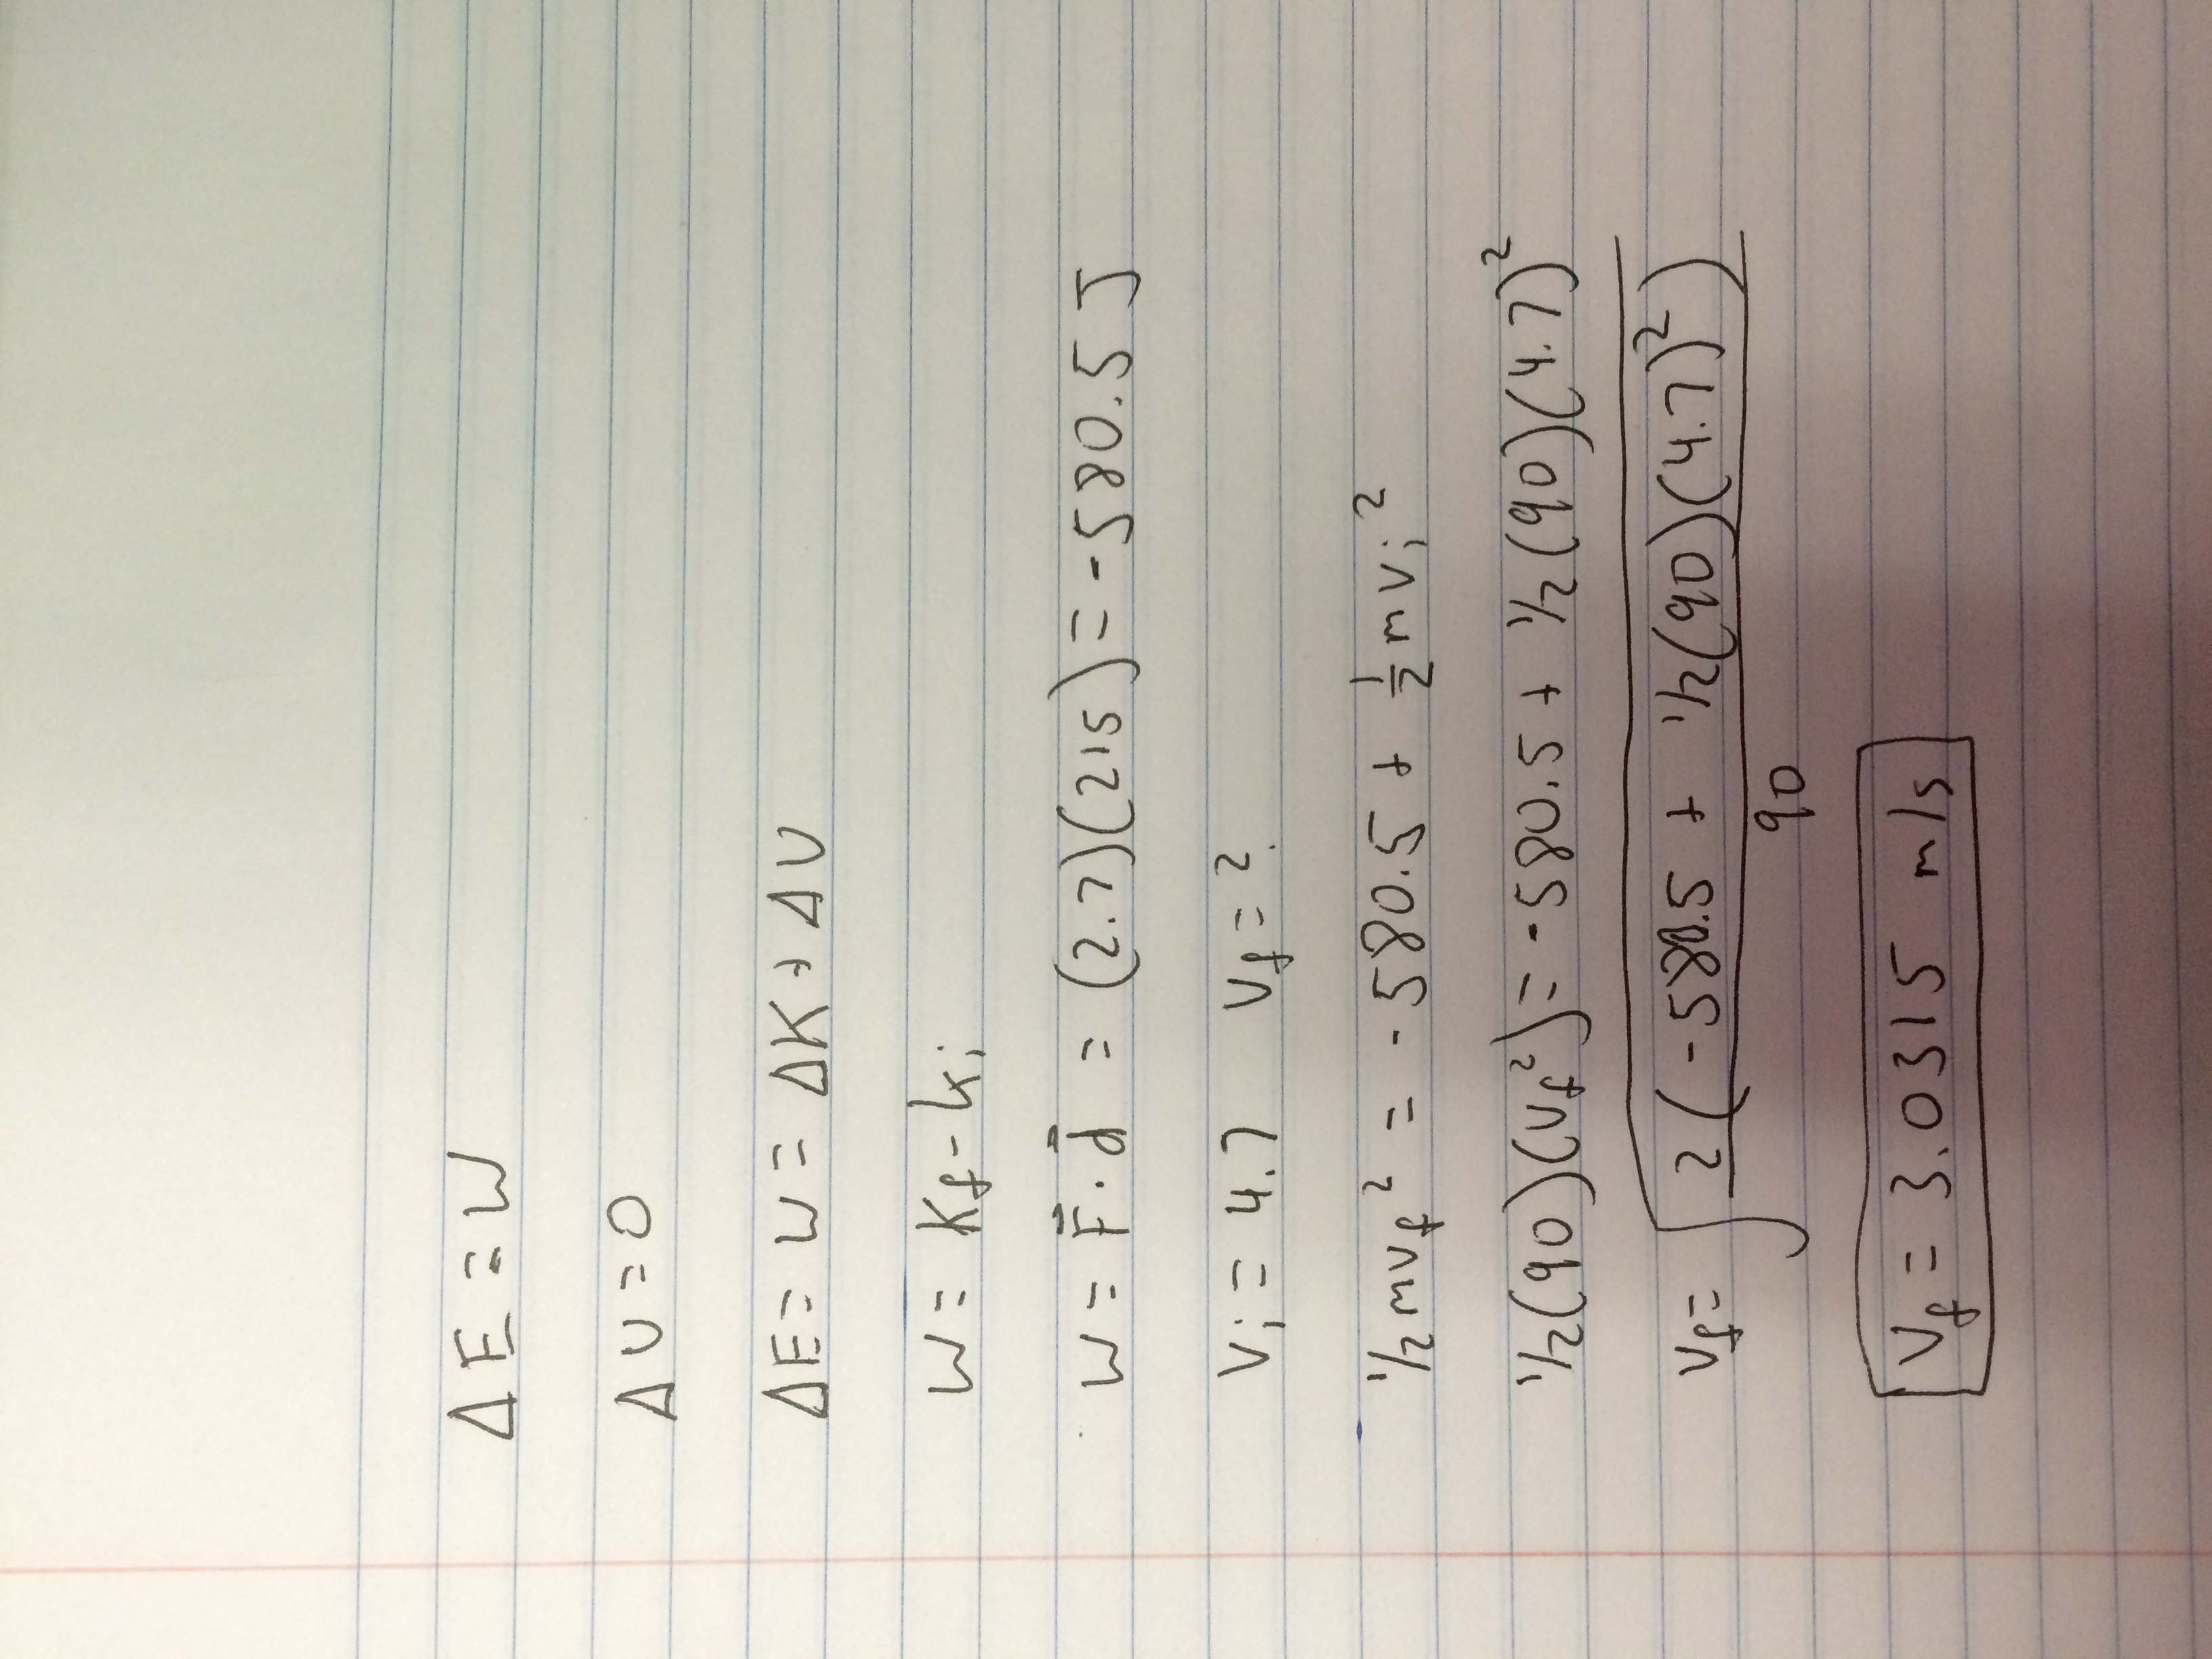 ΔE = W
ΔU = 0
ΔE = W = ΔK + ΔU
W = Kf - Ki
W = F⃗ · d⃗ = (2.7)(215) = -580.5 J
Vi = 4.7 Vf = ?
1/2 mvf² = -580.5 + 1/2 mvi²
1/2(90)(vf²) = -580.5 + 1/2(90)(4.7)²
Vf = √(2(-580.5 + 1/2(90)(4.7)²)
90
Vf = 3.0315 m/s